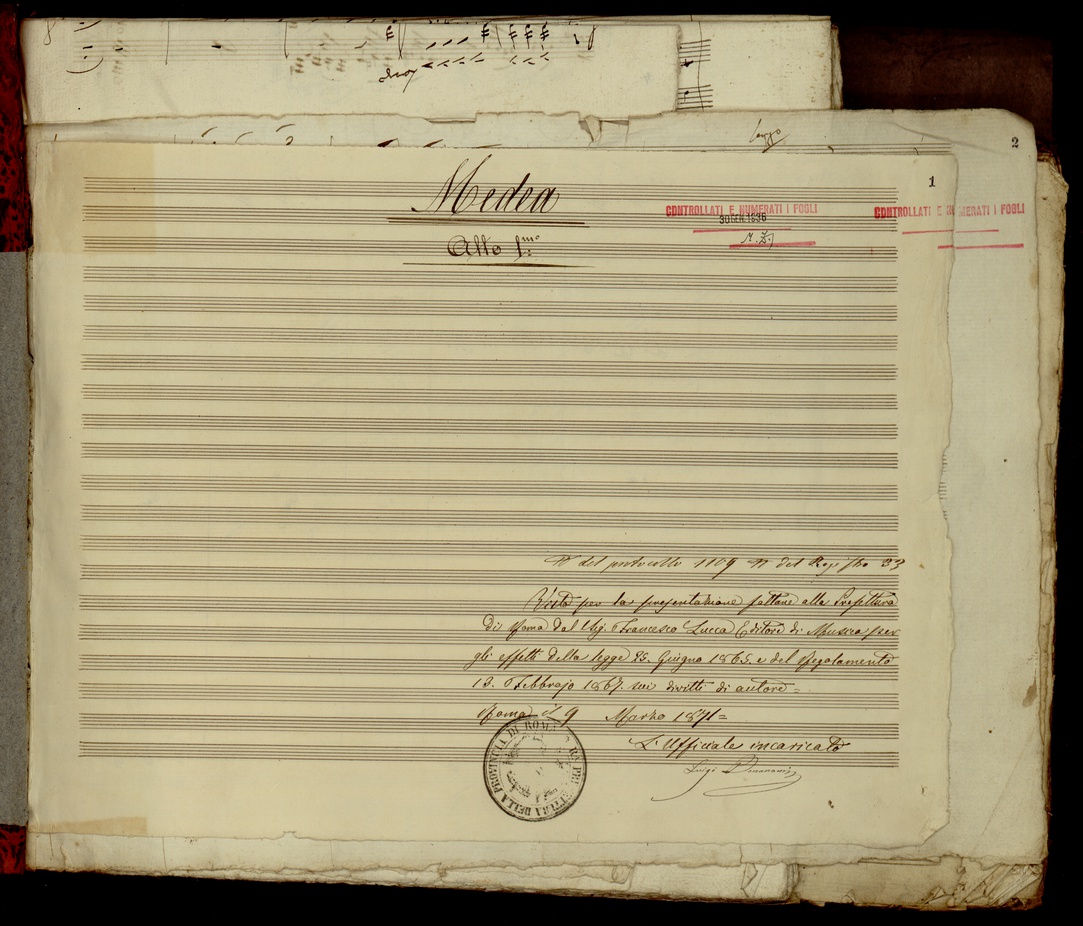 8
8
largo
2
1
Medea
Atto p.mo
CONTROLLATI E NUMERATI I FOGLI
30 GEN. 1936
CONTROLLATI E NUMERATI I FOGLI
N° del protocollo 1109 N° del Registro 33
Visto per la presentazione fattane alla Prefettura
di Roma dal Sig. Francesco Lucca Editore di Musica per
gli effetti della legge 25. Giugno 1865. e del Regolamento
13. Febbrajo 1867. sui diritti di autore =
Roma il 9 Marzo 1871 =
L'Ufficiale incaricato
Luigi
PREFETTURA DELLA PROVINCIA DI ROMA